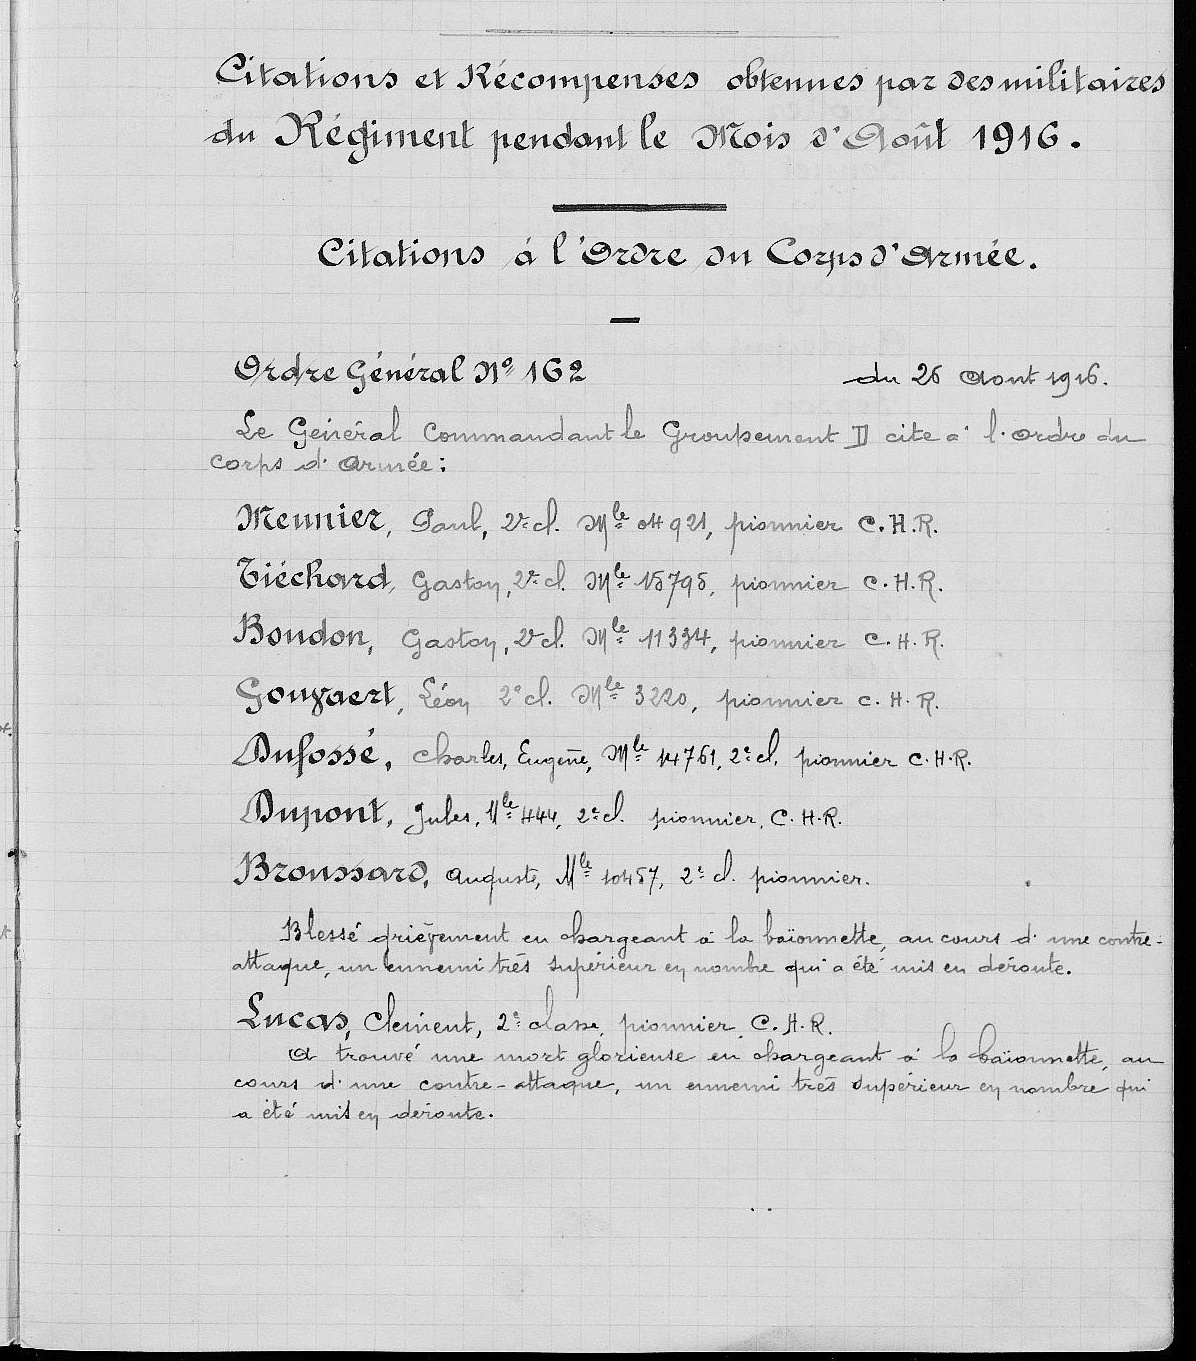 Citations et Récompenses obtenues par des militaires
du Régiment pendant le Mois d'Août 1916.
Citations à l'Ordre du Corps d'Armée.
Ordre Général No 162 du 26 Aout 1916.
Le Général Commandant le Groupement D cite à l'ordre du
Corps d'Armée :
Meunier, Paul, 2e cl. Mle 04921, pionnier C.H.R.
Tiéchard, Gaston, 2e cl. Mle 15795, pionnier C.H.R.
Boudon, Gaston, 2e cl. Mle 11334, pionnier C.H.R.
Gouvaert, Léon 2e cl. Mle 3220, pionnier C.H.R.
Dufossé, Charles, Eugène, Mle 14761, 2e cl. pionnier C.H.R.
Dupont, Jules, Mle 444, 2e cl. pionnier, C.H.R.
Broussard, Auguste, Mle 10457, 2e cl. pionnier.
Blessé grièvement en chargeant à la baïonnette, au cours d'une contre-
attaque, un ennemi très supérieur en nombre qui a été mis en déroute.
Lucas, Clément, 2e classe, pionnier, C.H.R.
A trouvé une mort glorieuse en chargeant à la baïonnette, au
cours d'une contre-attaque, un ennemi très supérieur en nombre qui
a été mis en déroute.